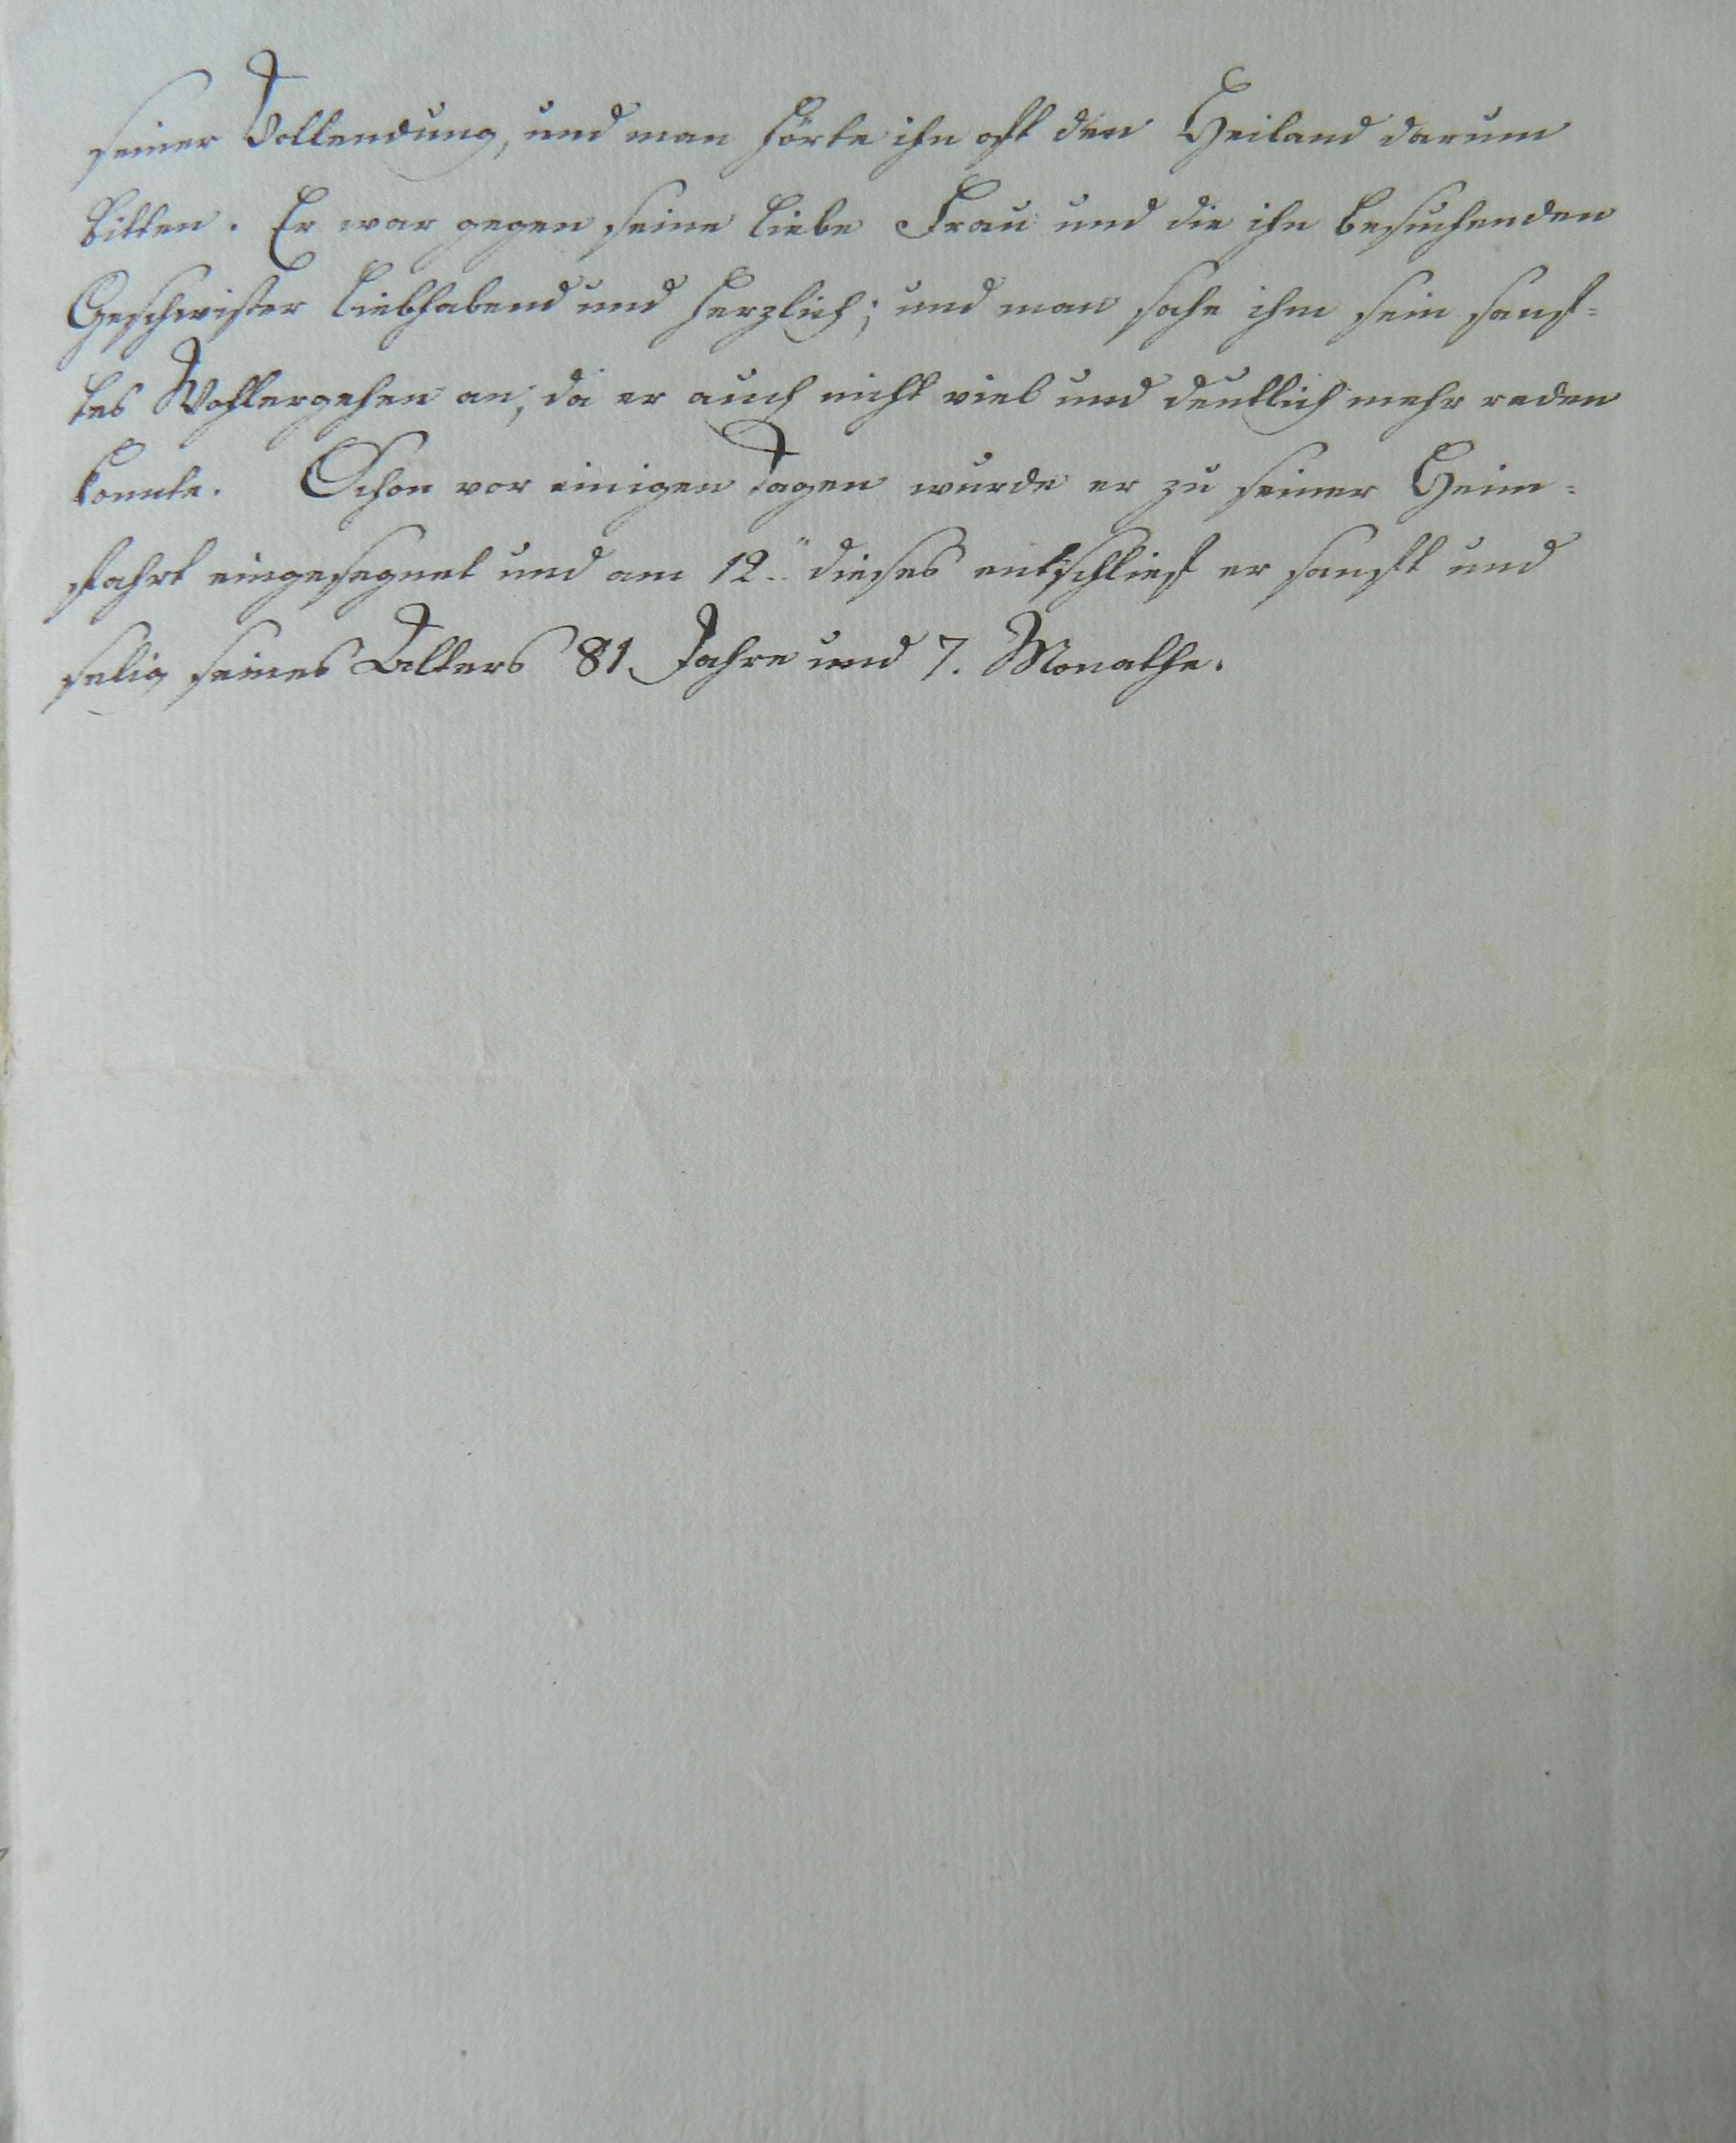 seiner Vollendung, und man hörte ihn oft den Heiland darum
bitten. Er war gegen seine liebe Frau und die ihn besuchenden
Geschwister liebhabend und herzlich; und man sahe ihm sein sanf-
tes Wohlergehen an, da er auch nicht viel und deutlich mehr reden
konnte. Schon vor einigen Tagen wurde er zu seiner Heim-
fahrt eingesegnet und am 12.. dieses entschlief er sanft und
selig seines Alters 81 Jahre und 7. Monathe.